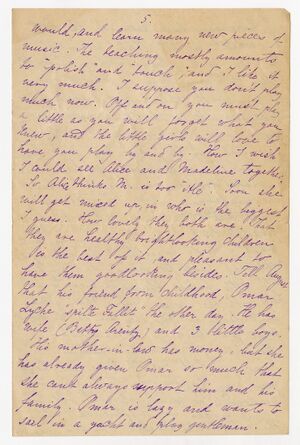 5.
would, and learn many new pieces of
music. The teaching mostly amounts
to "polish" and "touch", and I like it
very much. I suppose you don't play
much now. Off and on you must play
a little as you will forget what you
knew, and the little girls will love to
have you play by and by. How I wish
I could see Alice and Madeline together.
So Alice thinks M. is too "Ati". You else
will get mixed up in who is the biggest
I guess. How lovely they both are. That
they are healthy bright looking children
is the best of it and pleasant to
have them goodlooking besides. Tell
that his friend from childhood, Omar
Lyche the other day. He has
wife (Betty ) and 3 little boys.
His mother-in-law has money, but she
has already given Omar so much that
she can't always support him and his
family. Omar is lazy and wants to
sail in a yacht and play gentleman.